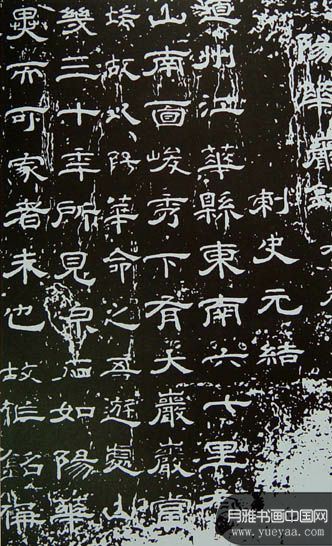 陽華巖銘
刺史元結
道州江華縣東南六七里有
山南面峻秀下有大巖巖當
端故以陽華命之吾遊處山
幾三十年所見泉石如陽華
異而可家者未也故作銘稱
月雅书画中国网
www.yueyaa.com